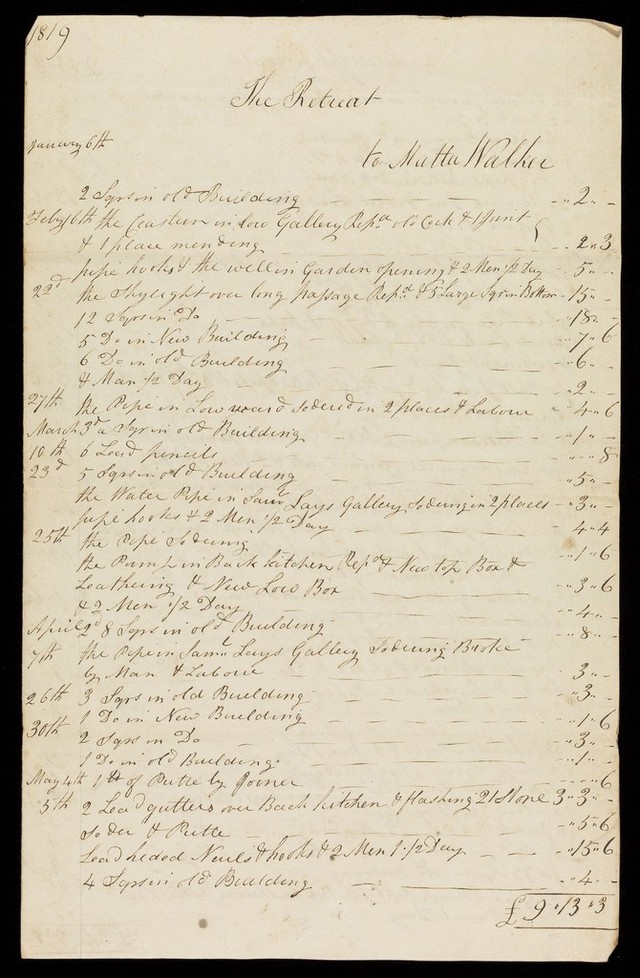 1819
The Retreat
January 6th
to Matta Walker
2 Sqrs in old Building - " 2 " -
Feby 16th the Ceastern in Low Gallery Repd old Cock & 1 Junt
& 1 place mending - " 2 " 3
pipe hooks & the well in Garden opening & 2 Men 1/2 Day - 5 " -
22d the Skylight over long Passage Repd & 5 Large Sqrs in Bottom - 15 " -
12 Sqrs in Do - 18 " -
5 Do in New Building - " 7 " 6
6 Do in old Building - " 6 " -
& Man 1/2 Day - " 2 " -
27th the Pipe in Low ward Sodered in 2 places & Labour - " 4 " 6
March 3d a Sqr in old Building - " 1 " -
10th 6 Lead pencils - " - " 8
23d 5 Sqrs in old Building - " 5 " -
the Water Pipe in Saml Lays Gallery Sodering in 2 places - " 3 " -
pipe hooks & 2 Men 1/2 Day - " 4 " 4
25th the Pipe Sodering - " 1 " 6
the Pump in Back kitchen Repd & New top Box &
Leathering & New Low Box - " 3 " 6
& 2 Men 1/2 Day - " 4 " -
April 2d 8 Sqrs in old Building - " 8 " -
7th the Pipe in Saml Lays Gallery Sodering Broke
by Man & Labour - " 3 " -
26th 3 Sqrs in old Building - " 3 " -
1 Do in New Building - " 1 " 6
30th 2 Sqrs in Do - " 3 " -
1 Do in old Building - " 1 " -
May 4th 1 lb of Putte by Joiner - " - " 6
5th 2 Lead gutters over Back kitchen & flashing 21 Stone 3 " 3 " -
Soder & Putte - " 5 " 6
Lead heded Neils & hooks & 2 Men 1 1/2 Day - " 15 " 6
4 Sqrs in old Building - " 4 " -
£ 9 " 13 " 3